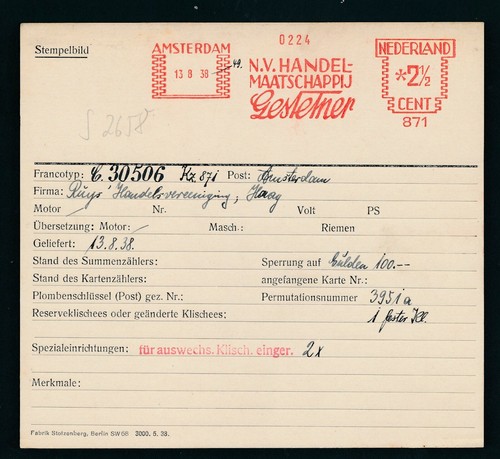 Stempelbild
AMSTERDAM
13 8 38
49.
0224
N.V. HANDEL-
MAATSCHAPPIJ
Gestetner
NEDERLAND
*2½
CENT
871
S 2658
Francotyp: C. 30506 Kz 871 Post: Amsterdam
Firma: Ruys' Handelsvereeniging, Haag
Motor / Nr. Volt PS
Übersetzung: Motor: / Masch.: Riemen
Geliefert: 13.8.38.
Stand des Summenzählers: Sperrung auf Gulden 100.--
Stand des Kartenzählers: angefangene Karte Nr.:
Plombenschlüssel (Post) gez. Nr.: Permutationsnummer 3951a
Reserveklischees oder geänderte Klischees: 1 fester Kl.
Spezialeinrichtungen: für auswechs. Klisch. einger. 2x
Merkmale:
Fabrik Stolzenberg, Berlin SW 68 3000. 5. 38.